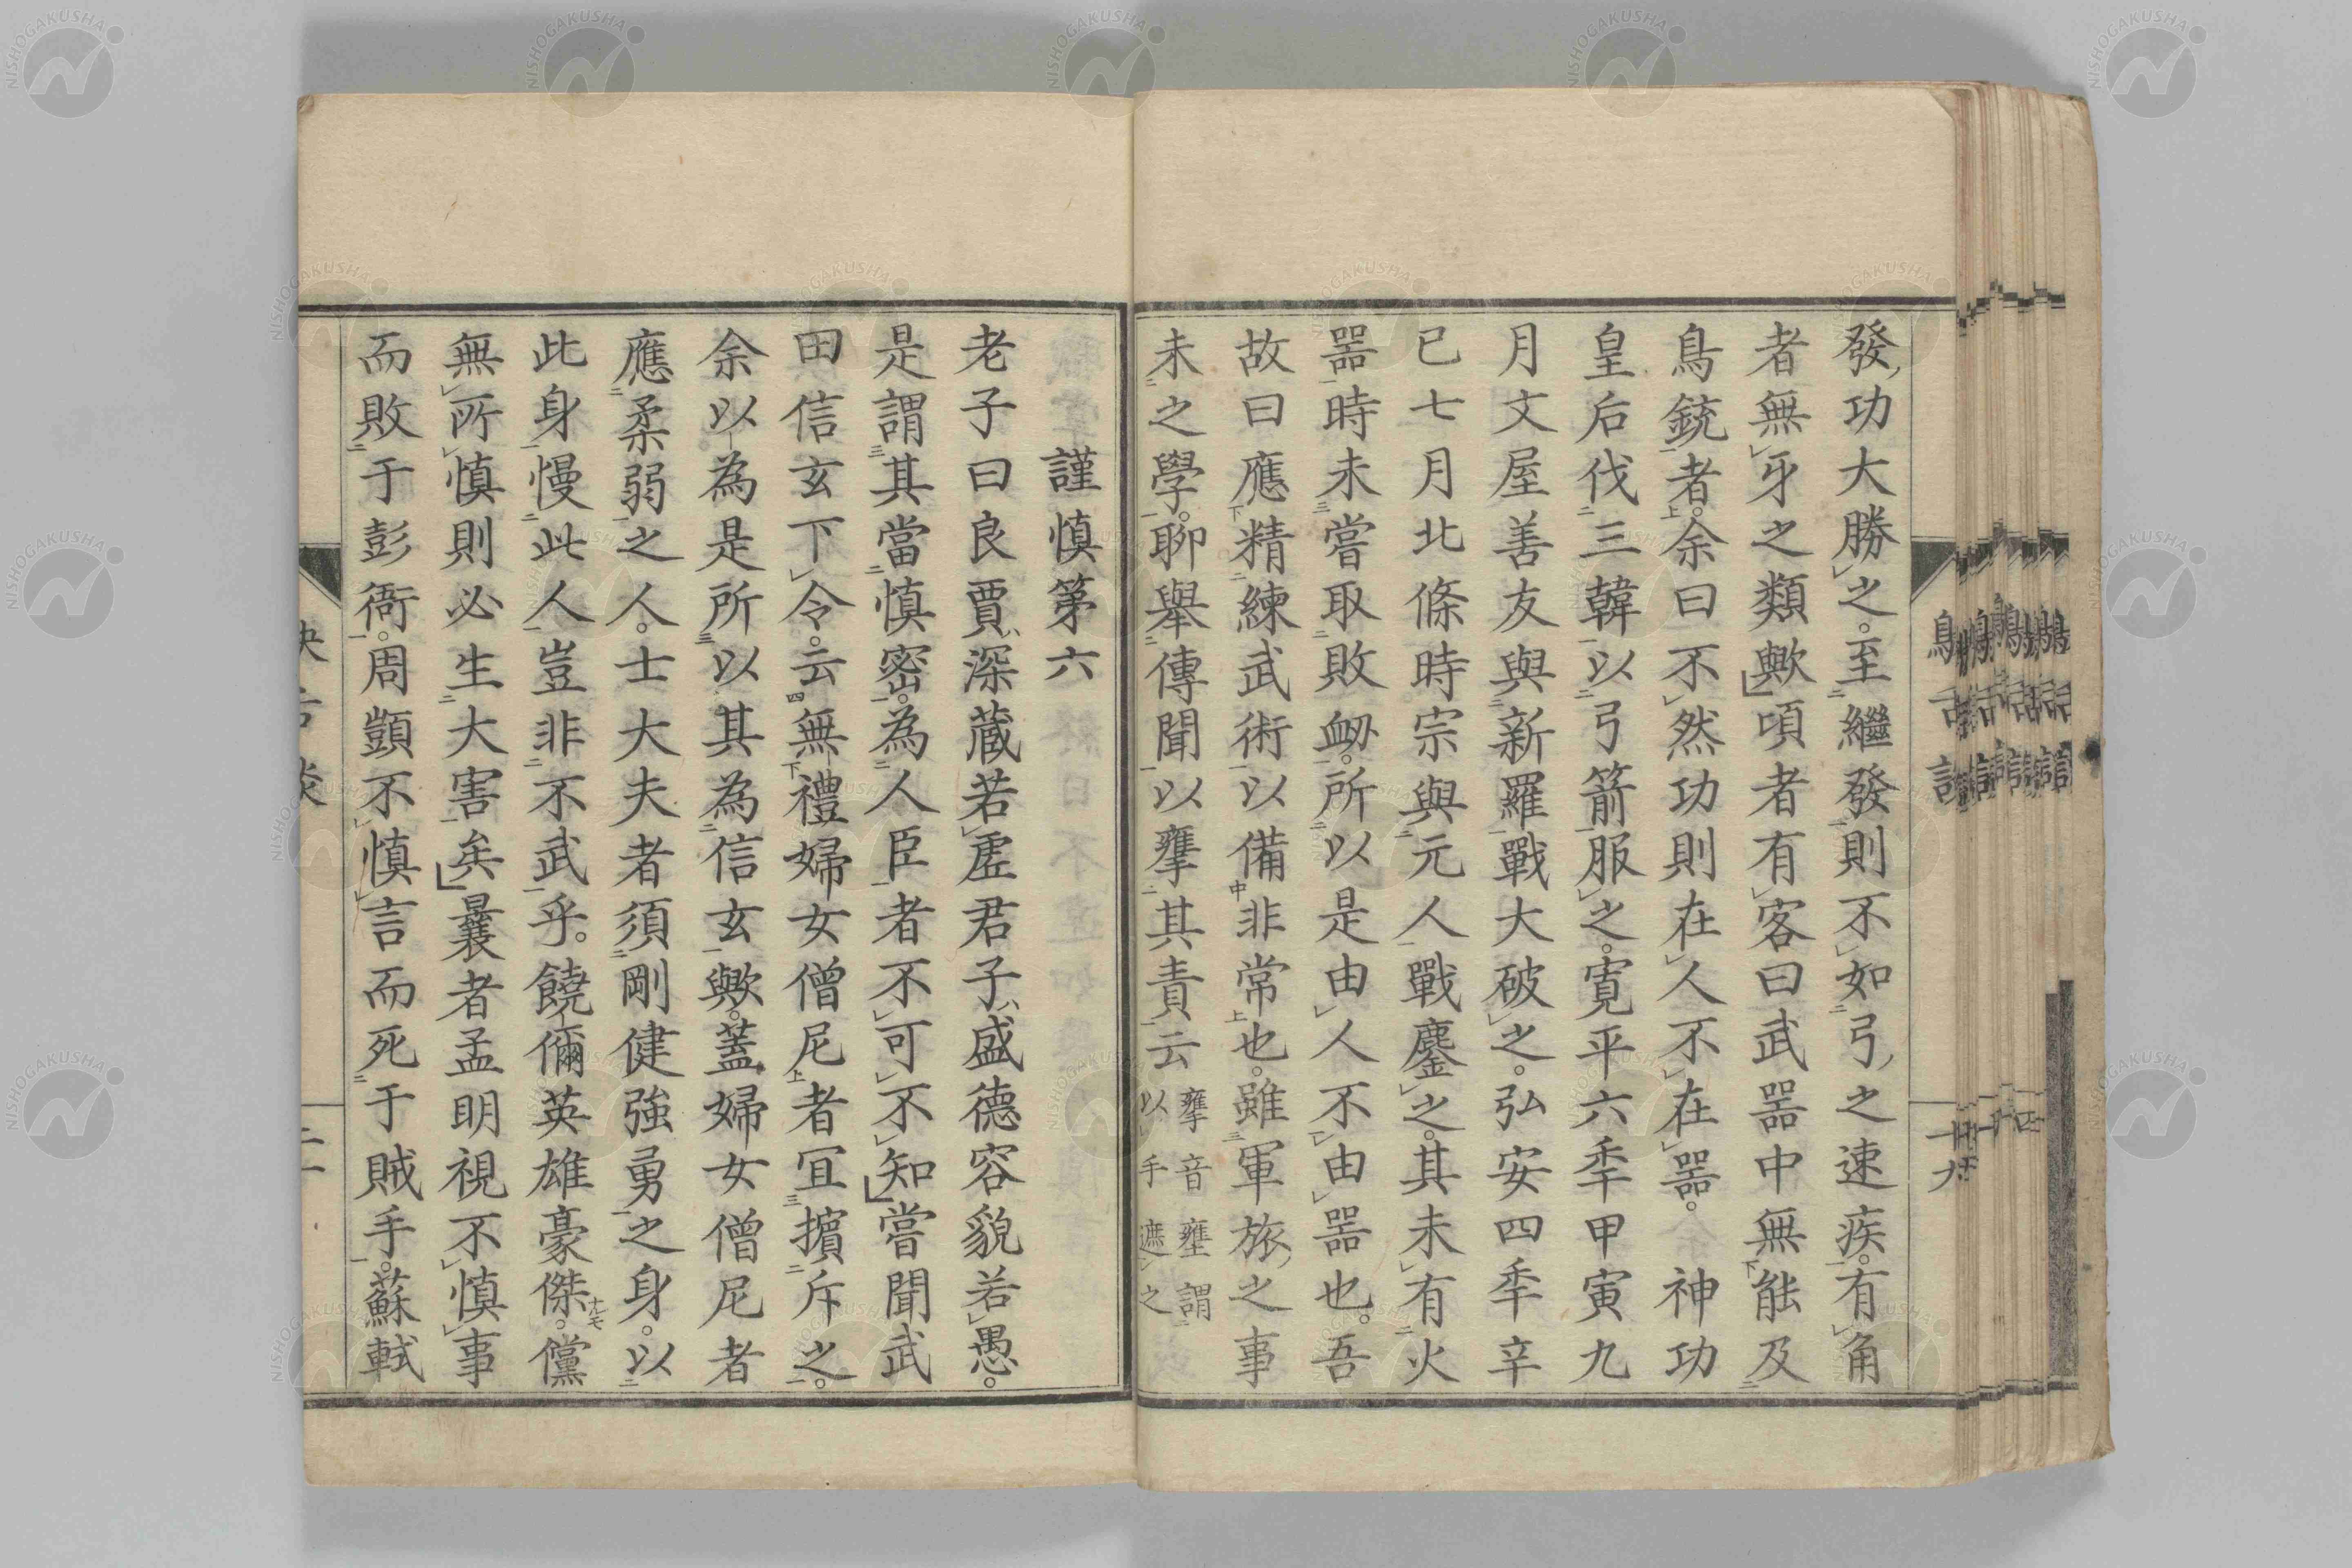 發功大勝之。至繼發則不如弓之速疾。有角
者無牙之類歟頃者有客曰武噐中無能及
鳥銃者。余曰不然功則在人不在噐。神功
皇后伐三韓以弓箭服之。寬平六秊甲寅九
月文屋善友與新羅戰大破之。弘安四秊辛
已七月北條時宗與元人戰鏖之。其未有火
噐時未嘗取敗衂。所以是由人不由噐也。吾
故曰應精練武術以備非常也。雖軍旅之事
未之學。聊舉傳聞以壅其責云
壅音壅謂
以手遮之
謹慎第六
老子曰良賈深蔵若虛君子盛德容貌若愚。
是謂其當慎密。為人臣者不可不知嘗聞武
田信玄下令。云無禮婦女僧尼者宜擯斥之。
余以為是所以其為信玄歟。蓋婦女僧尼者
應柔弱之人。士大夫者須剛健強勇之身。以
此身慢此人豈非不武乎。饒儞英雄豪傑。儻
無所慎則必生大害矣曩者孟明視不慎事
而敗于彭衙。周顗不慎言而死于賊手。蘇軾